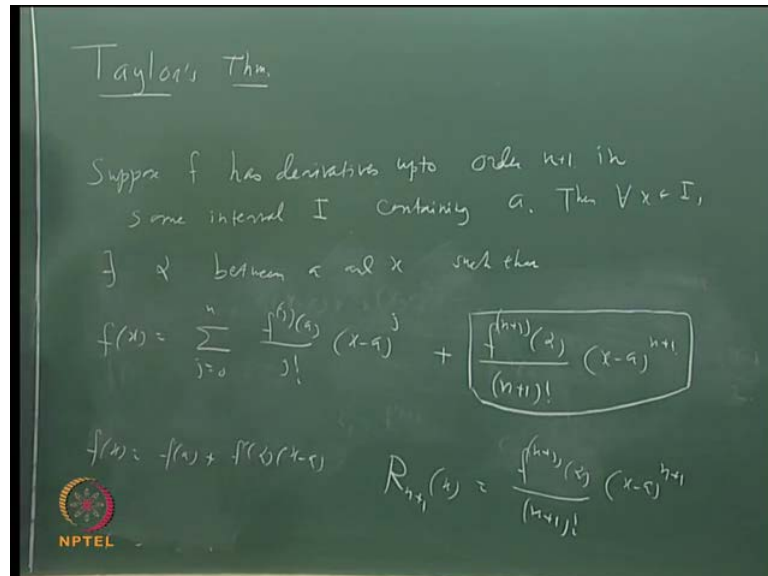 Taylor's Thm.
Suppose f has derivatives upto order n+1 in
some interval I containing a. Then ∀ x ∈ I,
∃ α between a and x such that
f(x) = \sum_{j=0}^{n} \frac{f^{(j)}(a)}{j!} (x-a)^j + \frac{f^{(n+1)}(α)}{(n+1)!} (x-a)^{n+1}
f(x) = f(a) + f'(α)(x-a)
R_{n+1}(x) = \frac{f^{(n+1)}(α)}{(n+1)!} (x-a)^{n+1}
NPTEL